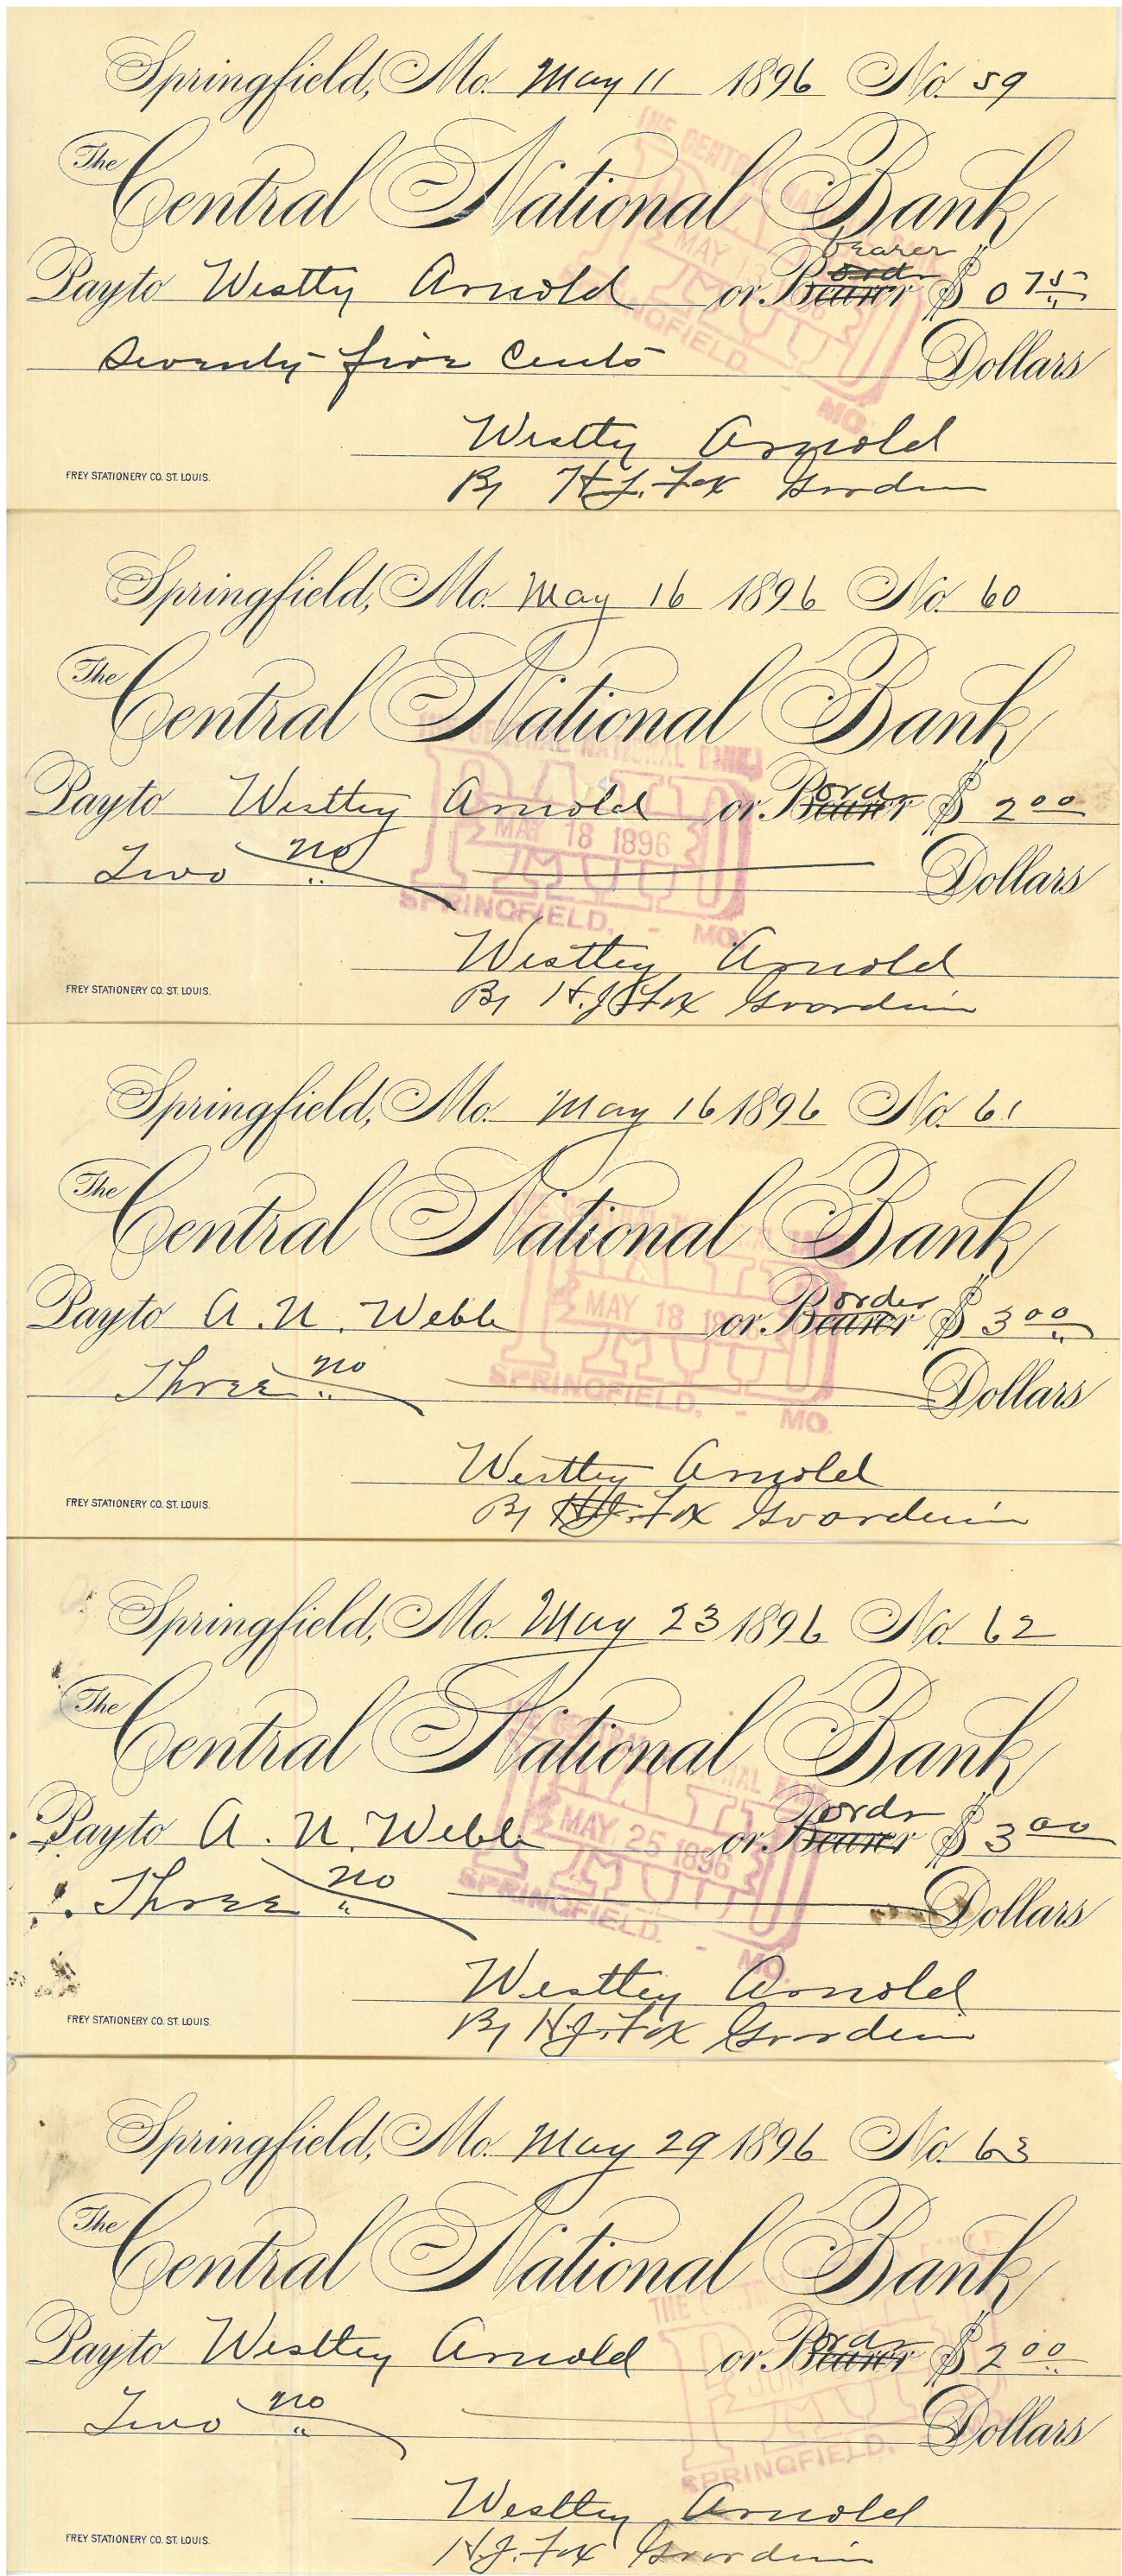 Springfield, Mo. May 11 1896 No. 59
The Central National Bank
bearer
Pay to Westty Arnold or Bearer $ 0 75
Seventy-five Cents Dollars
Westty Arnold
By H.J. Fox
FREY STATIONERY CO. ST. LOUIS.
THE CENTRAL
PAID
MAY
SPRINGFIELD, - MO.
Springfield, Mo. May 16 1896 No. 60
The Central National Bank
Pay to Westtey Arnold or Bearer $ 2 00
Two no Dollars
Westtey Arnold
By H.J. Fox Gvardin
FREY STATIONERY CO. ST. LOUIS.
CENTRAL NATIONAL BANK
PAID
MAY 18 1896
SPRINGFIELD, - MO.
Springfield, Mo. May 16 1896 No. 61
The Central National Bank
order
Pay to A. N. Webb or Bearer $ 3 00
Three no Dollars
Westtey Arnold
By H.J. Fox Gvardin
FREY STATIONERY CO. ST. LOUIS.
PAID
MAY 18
SPRINGFIELD, - MO.
Springfield, Mo. May 23 1896 No. 62
The Central National Bank
Pay to A. N. Webb or Bearer $ 3 00
Three no Dollars
Westtey Arnold
By H.J. Fox
FREY STATIONERY CO. ST. LOUIS.
PAID
MAY 25 1896
SPRINGFIELD, - MO.
Springfield, Mo. May 29 1896 No. 63
The Central National Bank
Pay to Westtey Arnold or Bearer $ 2 00
Two no Dollars
Westtey Arnold
H.J. Fox Gvardin
FREY STATIONERY CO. ST. LOUIS.
THE
PAID
JUN
SPRINGFIELD,